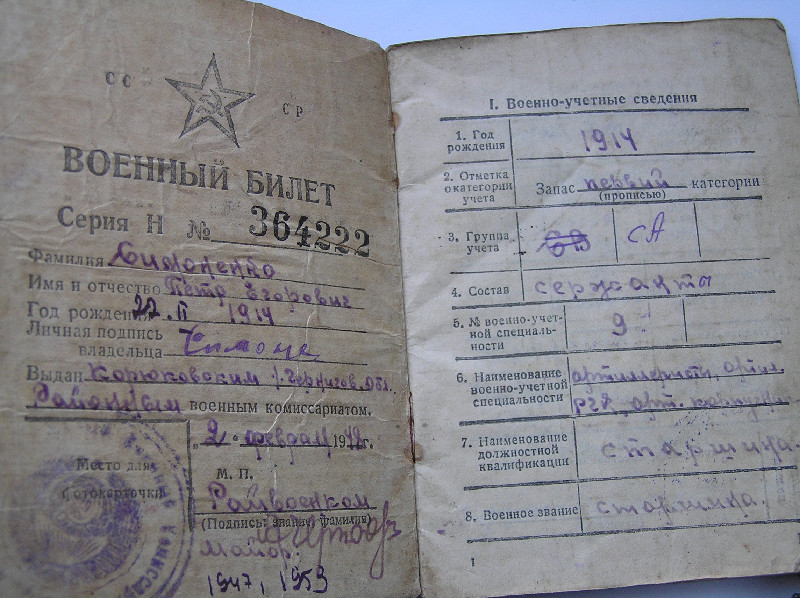 СС СР
ВОЕННЫЙ БИЛЕТ
Серия Н № 364222
Фамилия Симоненко
Имя и отчество Петр Егорович
Год рождения 22.II 1914
Личная подпись
владельца Симоне
Выдан Корюковским Чернигов. обл.
Районным военным комиссариатом.
"2" февраля 1948 г.
Место для
фотокарточки
М. П.
Райвоенком
(Подпись, звание, фамилия)
майор
1947, 1953
I. Военно-учетные сведения
1. Год
рождения 1914
2. Отметка
о категории
учета Запас первой категории
(прописью)
3. Группа
учета СА
4. Состав сержанты
5. № военно-учет-
ной специаль-
ности 9
6. Наименование
военно-учетной
специальности артиллеристы,
7. Наименование
должностной
квалификации старшина.
8. Военное звание старшина.
1